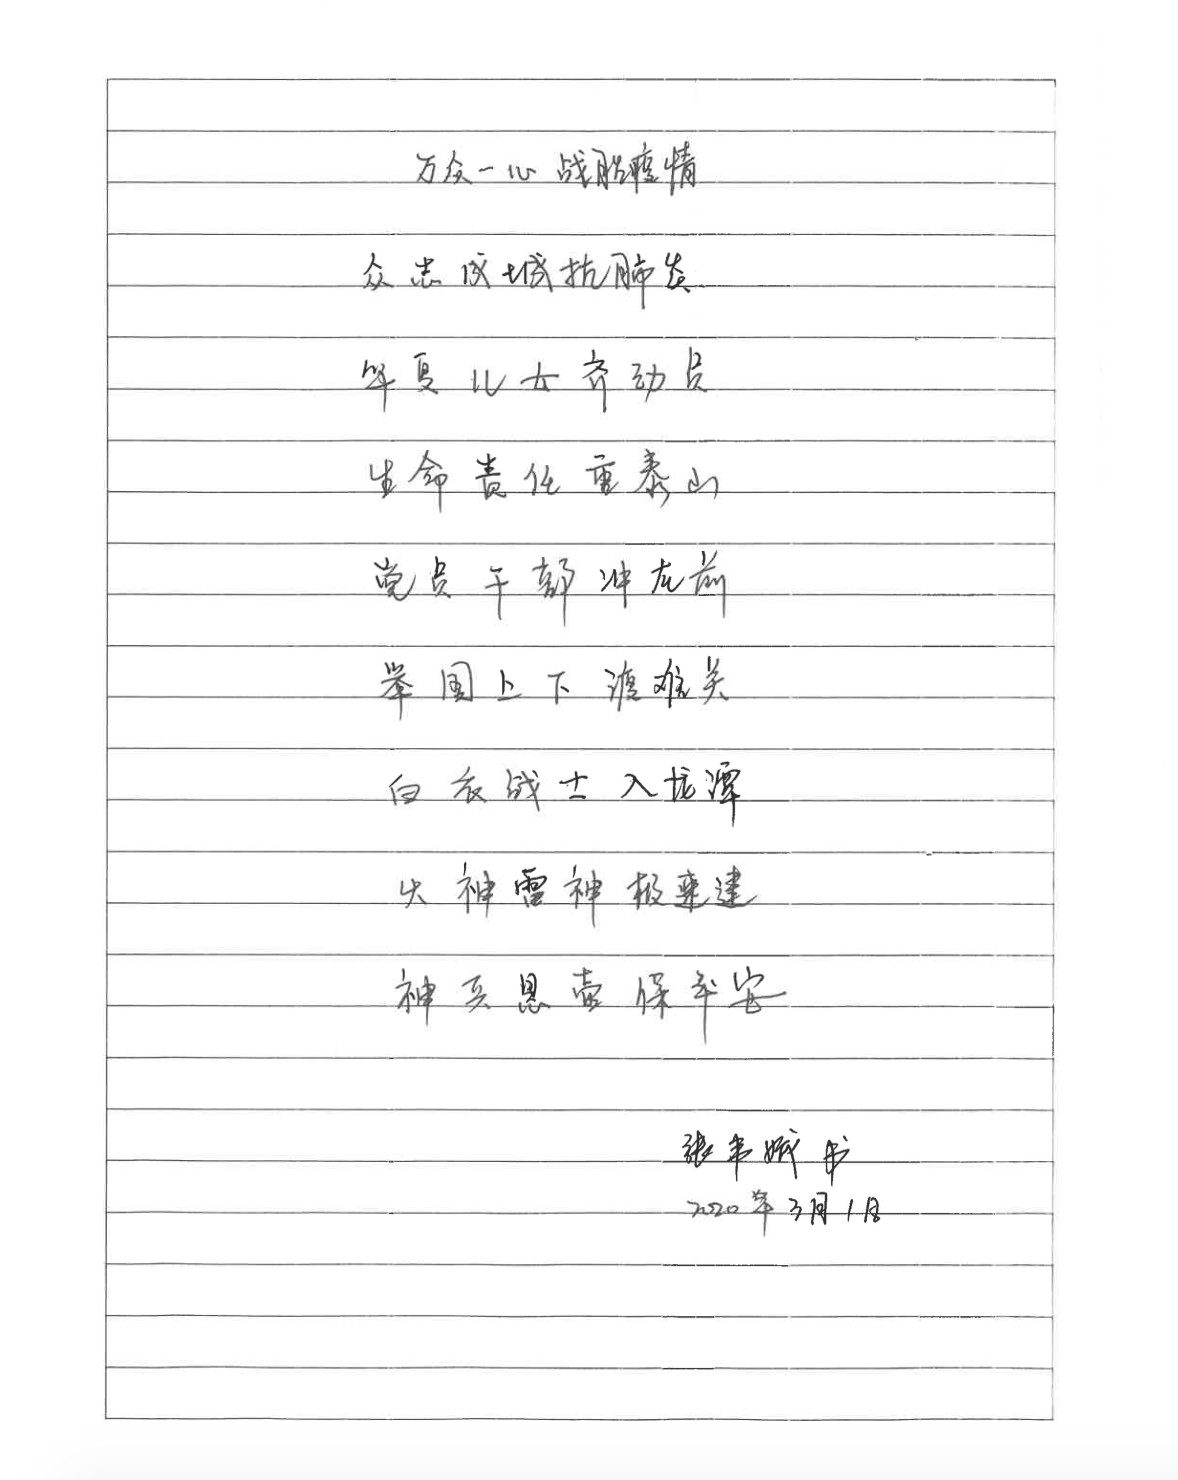 万众一心 战胜疫情
众志成城抗肺炎
华夏儿女齐动员
生命责任重泰山
党员干部冲在前
举国上下渡难关
白衣战士入龙潭
火神雷神极速建
神兵悬壶保平安
张 书
2020年3月1日